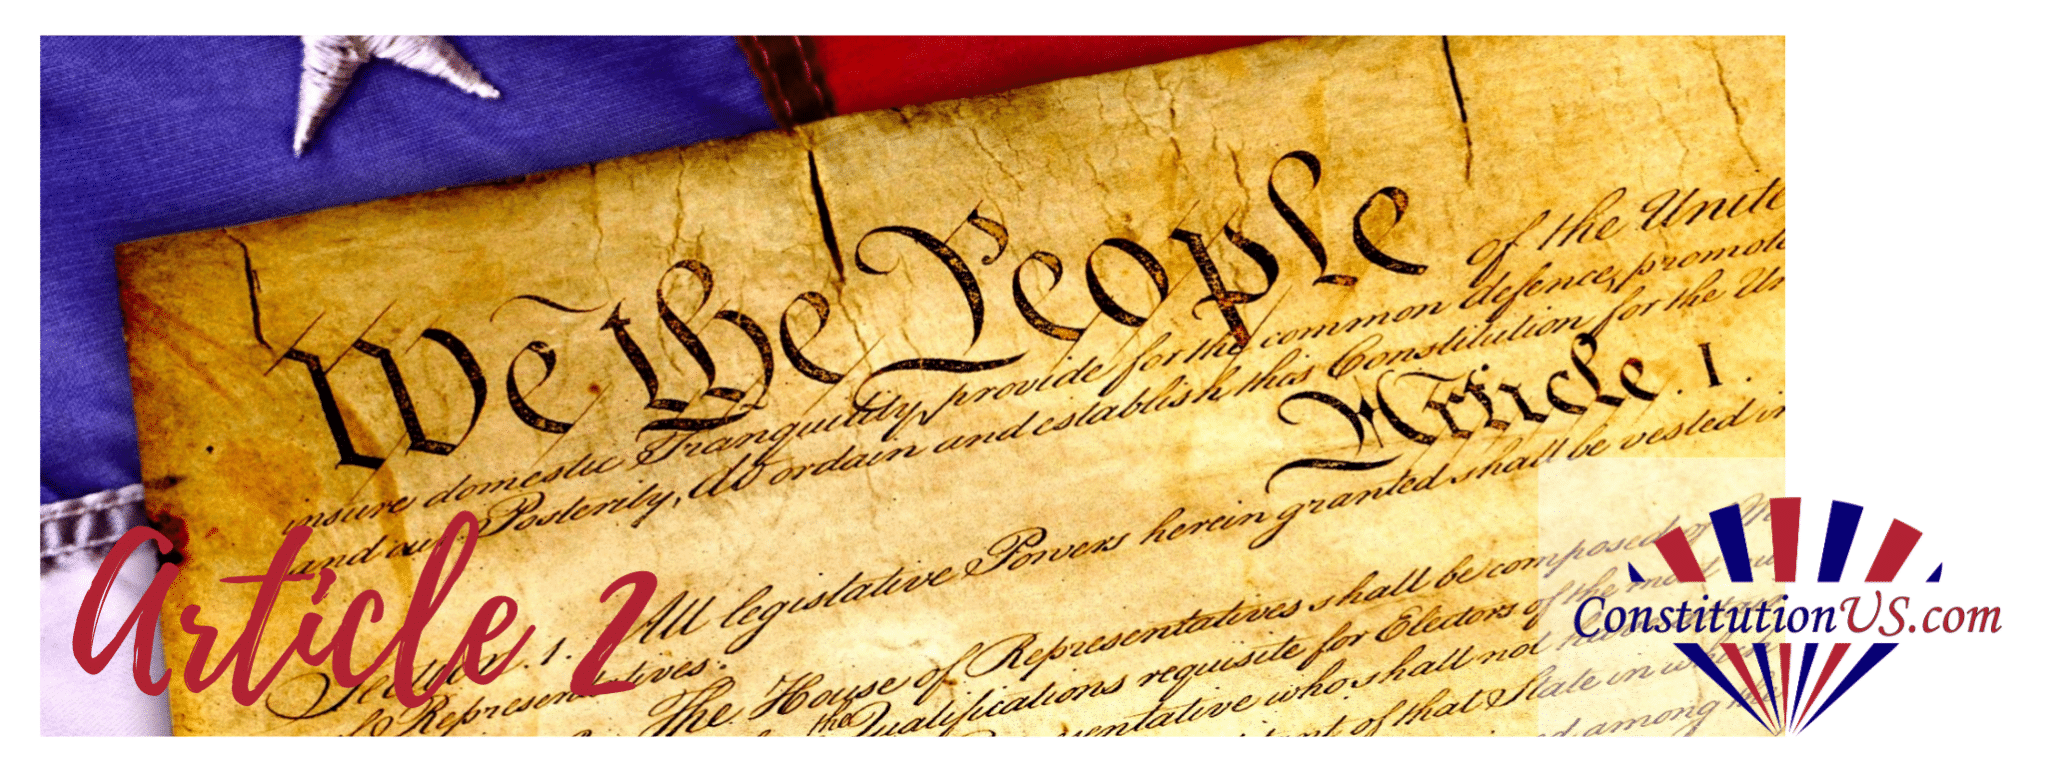 We the People
of the Unite
insure domestic Tranquility, provide for the common defence, promote
and our Posterity, do ordain and establish this Constitution for the Un
Article. I.
Section. 1. All legislative Powers herein granted shall be vested in
of Representatives.
The House of Representatives shall be composed of
the Qualifications requisite for Electors of the most nu
sentative who shall not have
of that State in which
among the
Article 2
ConstitutionUS.com